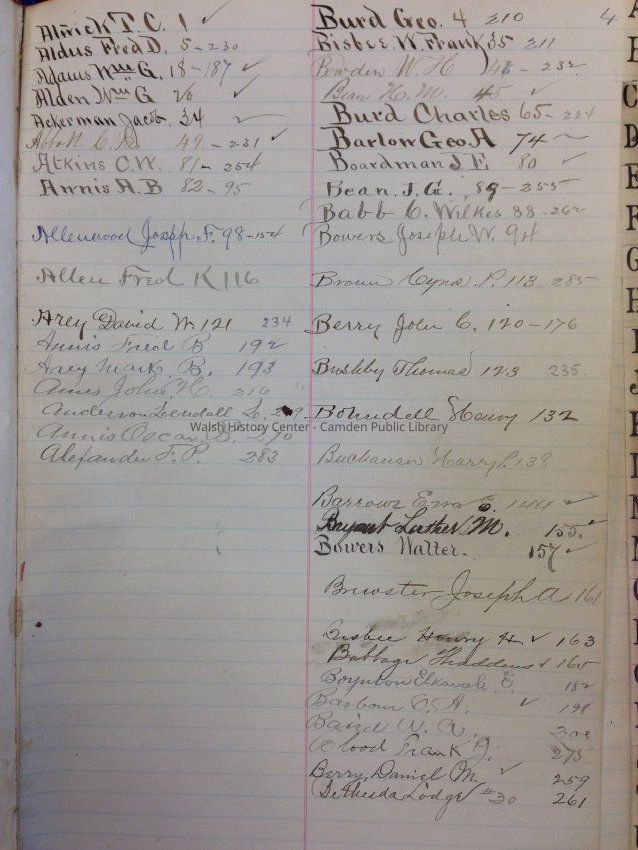 Alwick T. C. 1 ✓
Aldus Fred D. 5 - 230
Adams Wm G. 18 - 187 ✓
Alden Wm G 26 ✓
Ackerman Jacob. 34 ✓
Abbott C. 49 - 231 ✓
Atkins C.W. 81 - 254
Annis A.B 82 - 95
Allenwood Joseph F. 98 - 154
Allen Fred K 116
Arey David W. 121 234
Annis Fred B 192
Arey Mark B. 193
Ames John H. 216
Anderson Lendall L.
Annis Oscar 270
Alexander F. P. 283
4
Burd Geo. 4 210
Bisbee. W. Frank 35 211
Bowden W. H 232
Bean H. M. 45 ✓
Burd Charles 65 - 224
Barlow Geo. A 74
Boardman J. E 80 ✓
Bean. J. G. 89 - 255
Babb C. Wilkes 88 - 262
Bowers Joseph W. 94
Brown Cyrus P. 113 285
Berry John C. 120 - 176
Bushby Thomas 123 235
Bohndell Henry 132
Buchanan Harry 138
Barrows E. 144 ✓
Bryant Luther M. 155 ✓
Bowers Walter. 157 ✓
Brewster Joseph A 161
Bisbee Henry H ✓ 163
Babbage Thaddeus ✓ 165
Boynton Elkanah E. 182
Barbour C. A. ✓ 198
Baird W. 200
Blood Frank J. 275
Berry, Daniel M. ✓ 259
Bethesda Lodge #30 261
Walsh History Center - Camden Public Library